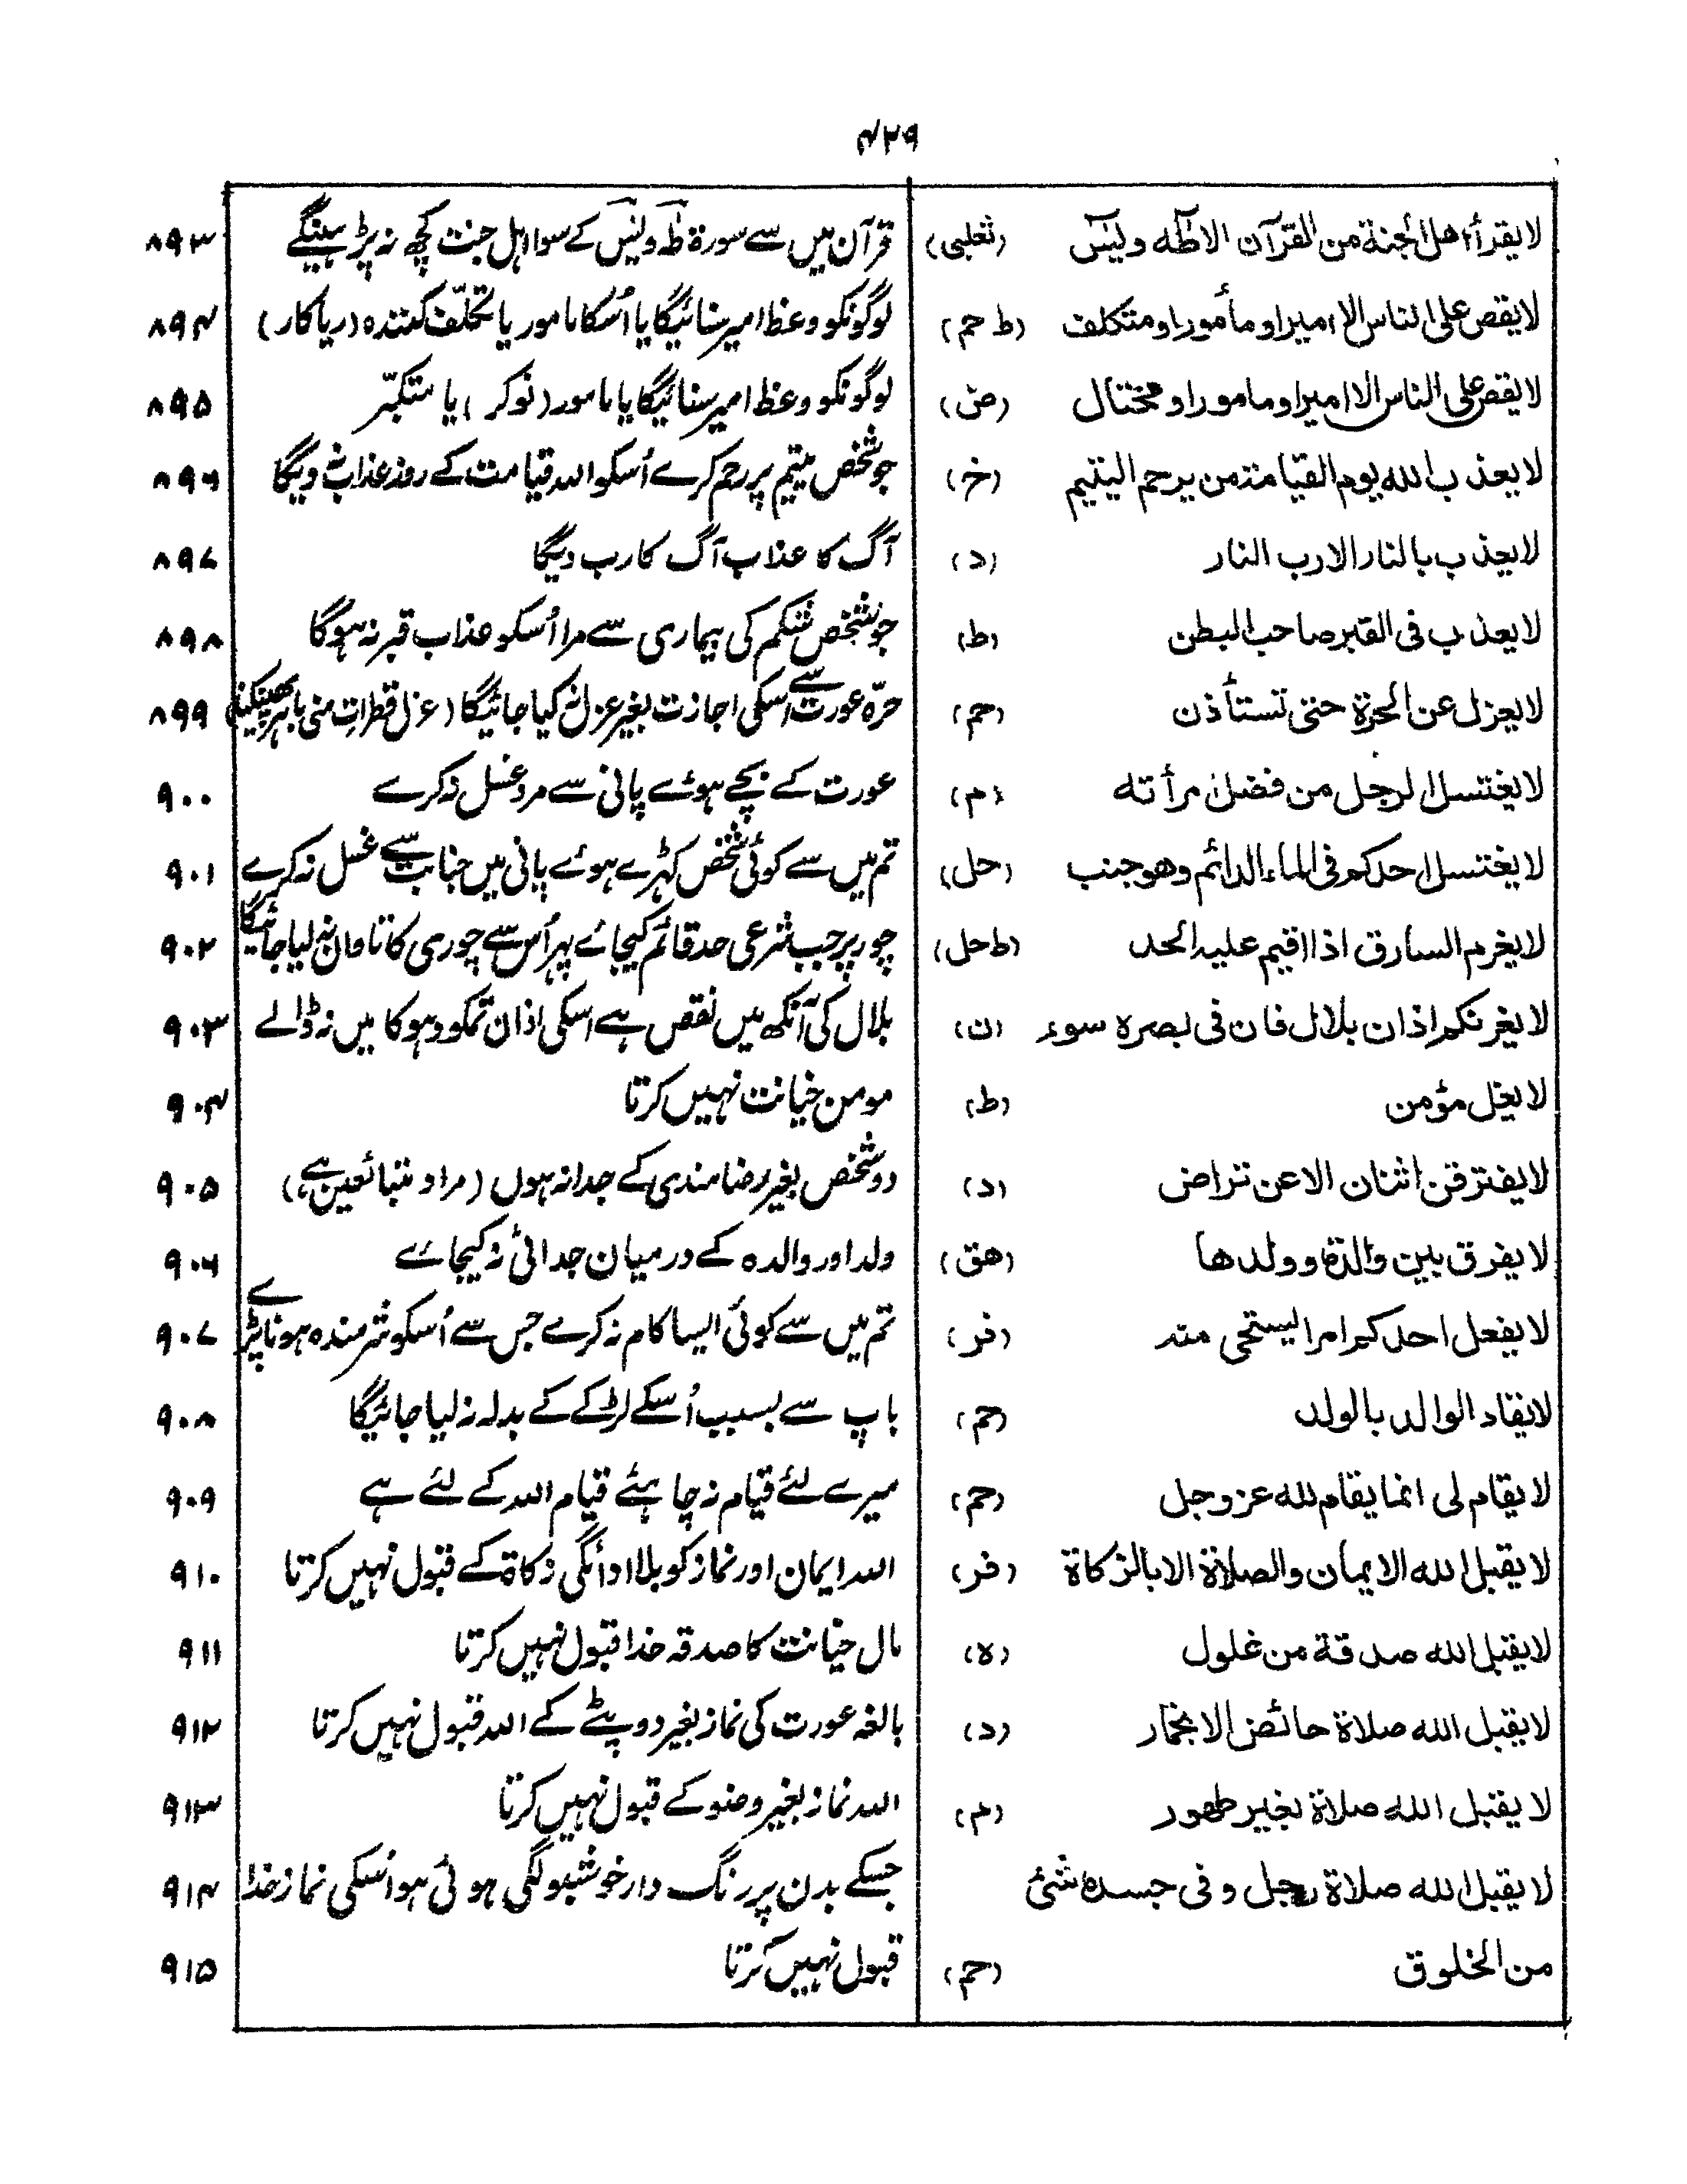 ۴۲۹
لا يقرأ اهل الجنة من القرآن الا طٰهٰ ويٰسٓ (ثعلبى) قرآن میں سے سورۃ طٰہٰ ویٰسٓ کے سوا اہل جنت کچھ نہ پڑہینگے ۸۹۳
لا يقص على الناس الا اميرا ومأمورا ومتكلف (ط حم) لوگونکو وعظ امیر سنائیگا یا اُسکا مامور یا تکلّف کنندہ (ریاکار) ۸۹۴
لا يقص على الناس الا اميرا وماموراو مختال (ض) لوگونکو وعظ امیر سنائیگا یا مامور (نوکر) یا متکبّر ۸۹۵
لا يعذب الله يوم القيامة من يرحم اليتيم (خ) جو شخص یتیم پر رحم کرے اُسکو اللہ قیامت کے روز عذاب نہ دیگا ۸۹۶
لا يعذب بالنار الا رب النار (د) آگ کا عذاب آگ کا رب دیگا ۸۹۷
لا يعذب فى القبر صاحب البطن (ط) جو شخص شکم کی بیماری سے مرا اُسکو عذاب قبر نہ ہوگا ۸۹۸
لا يعزل عن الحرة حتى تستأذن (حم) حرّہ عورت سے اسکی اجازت بغیر عزل نہ کیا جائیگا (عزل قطراتِ منی باہر پھینکنا) ۸۹۹
لا يغتسل الرجل من فضل امرأته (م) عورت کے بچے ہوئے پانی سے مرد غسل نہ کرے ۹۰۰
لا يغتسل احدكم فى الماء الدائم وهو جنب (حل) تم میں سے کوئی شخص کہڑے ہوئے پانی میں جنابت سے غسل نہ کرے ۹۰۱
لا يغرم السارق اذا اقيم عليه الحد (ط حل) چور پر جب شرعی حد قائم کیجائے پہر اُس سے چوری کا تاوان نہ لیا جائیگا ۹۰۲
لا يغرنكم اذان بلال فان فى بصره سوء (ن) بلال کی آنکھ میں نقص ہے اسکی اذان تمکو دہوکا میں نہ ڈالے ۹۰۳
لا يغل مؤمن (ط) مومن خیانت نہیں کرتا ۹۰۴
لا يفترقن اثنان الا عن تراض (د) دو شخص بغیر رضامندی کے جدا نہ ہوں (مراد متبائعین ہے) ۹۰۵
لا يفرق بين والدة وولدها (هق) ولد اور والدہ کے درمیان جدائی نہ کیجائے ۹۰۶
لا يفعل احدكم امرا ليستحى منه (فر) تم میں سے کوئی ایسا کام نہ کرے جس سے اُسکو شرمندہ ہونا پڑے ۹۰۷
لا يقاد الوالد بالولد (حم) باپ سے بسبب اُسکے لڑکے کے بدلہ نہ لیا جائیگا ۹۰۸
لا يقام لى انما يقام لله عز وجل (حم) میرے لئے قیام نہ چاہئے قیام اللہ کے لئے ہے ۹۰۹
لا يقبل الله الايمان والصلاة الا بالزكاة (فر) اللہ ایمان اور نماز کو بلا ادائگی زکاۃ کے قبول نہیں کرتا ۹۱۰
لا يقبل الله صدقة من غلول (ه) مال خیانت کا صدقہ خدا قبول نہیں کرتا ۹۱۱
لا يقبل الله صلاة حائض الا بخمار (د) بالغہ عورت کی نماز بغیر دوپٹے کے اللہ قبول نہیں کرتا ۹۱۲
لا يقبل الله صلاة بغير طهور (م) اللہ نماز بغیر وضو کے قبول نہیں کرتا ۹۱۳
لا يقبل الله صلاة رجل وفى جسده شئ جسکے بدن پر رنگ دار خوشبو لگی ہوئی ہو اُسکی نماز خدا ۹۱۴
من الخلوق (حم) قبول نہیں کرتا ۹۱۵